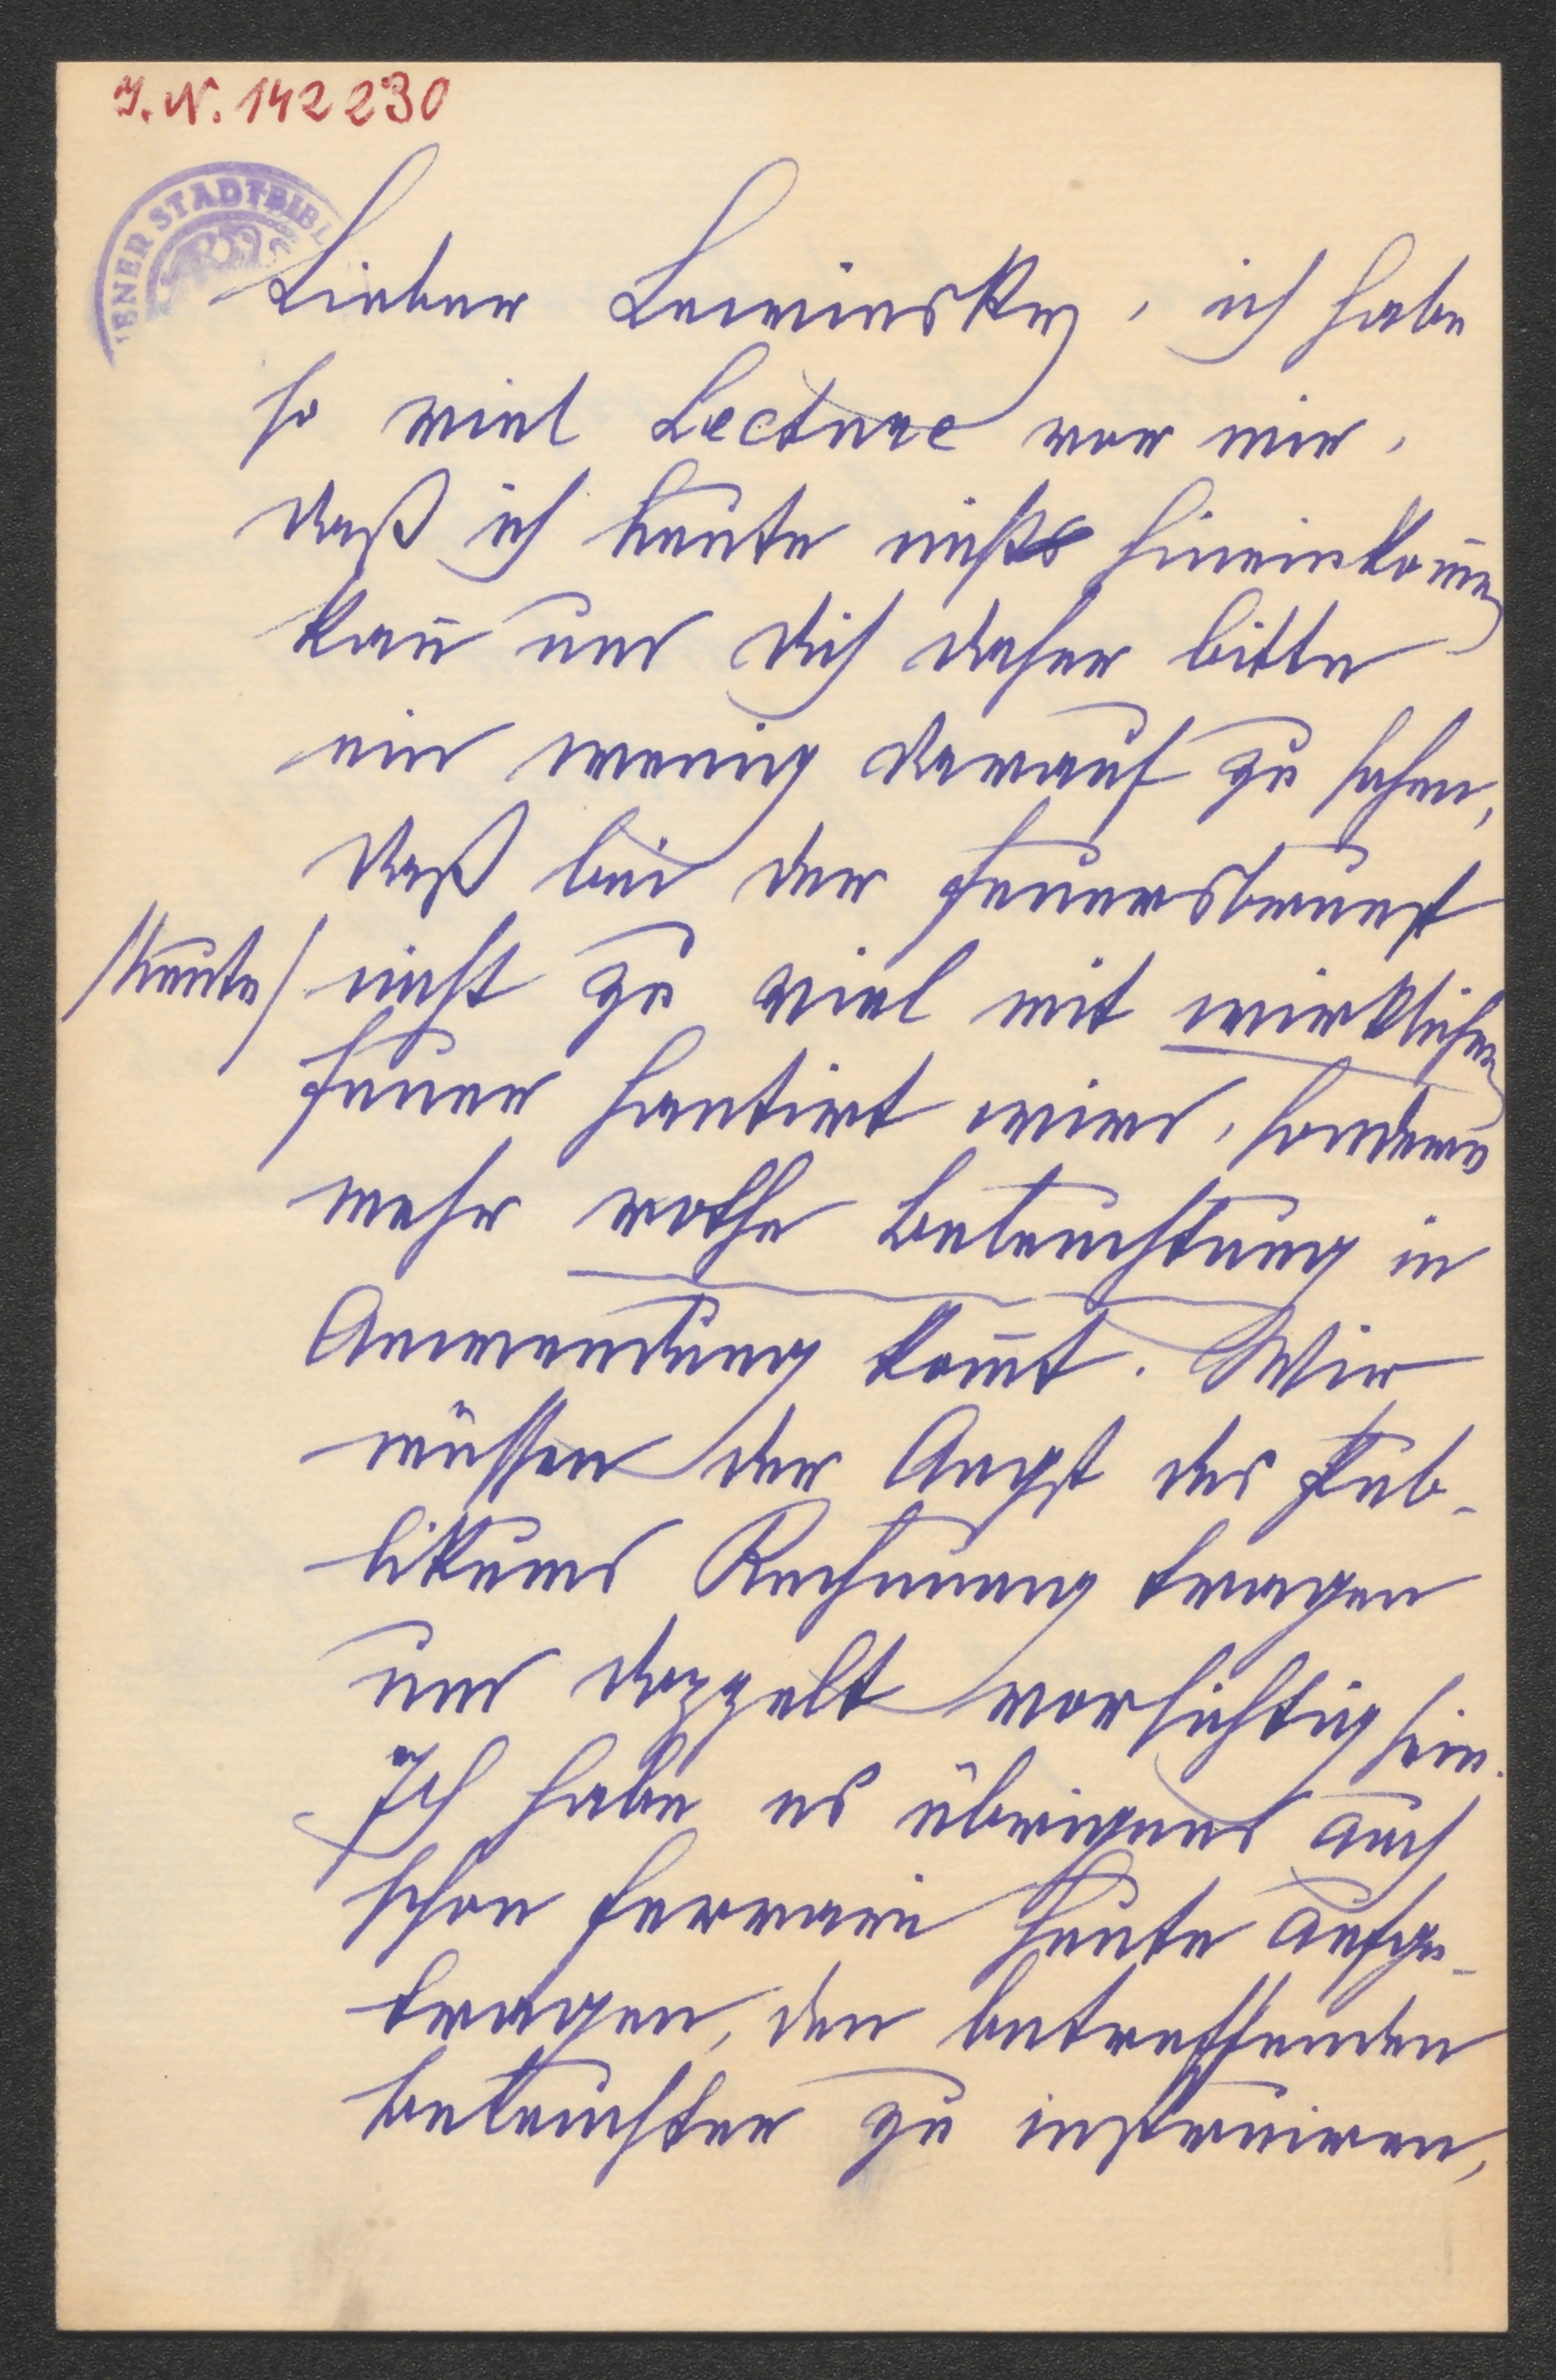 I. N. 142230
ENER STADTBIBL
Lieber Lewinsky, ich habe
so viel Lecture vor mir,
daß ich heute nicht hineinkom̄en
kan̄ und dich daher bitte
ein wenig darauf zu sehen,
daß bei der Feuersbrunst
/heute/ nicht zu viel mit wirklichem
Feuer hantirt wird, sondern
mehr rothe Beleuchtung in
Anwendung kom̄t. Wir
müssen der Angst des Pub-
likums Rechnung tragen
und doppelt vorsichtig sein.
Ich habe es übrigens auch
schon Ferrari heute aufge-
tragen, den betreffenden
Beleuchter zu instruiren,